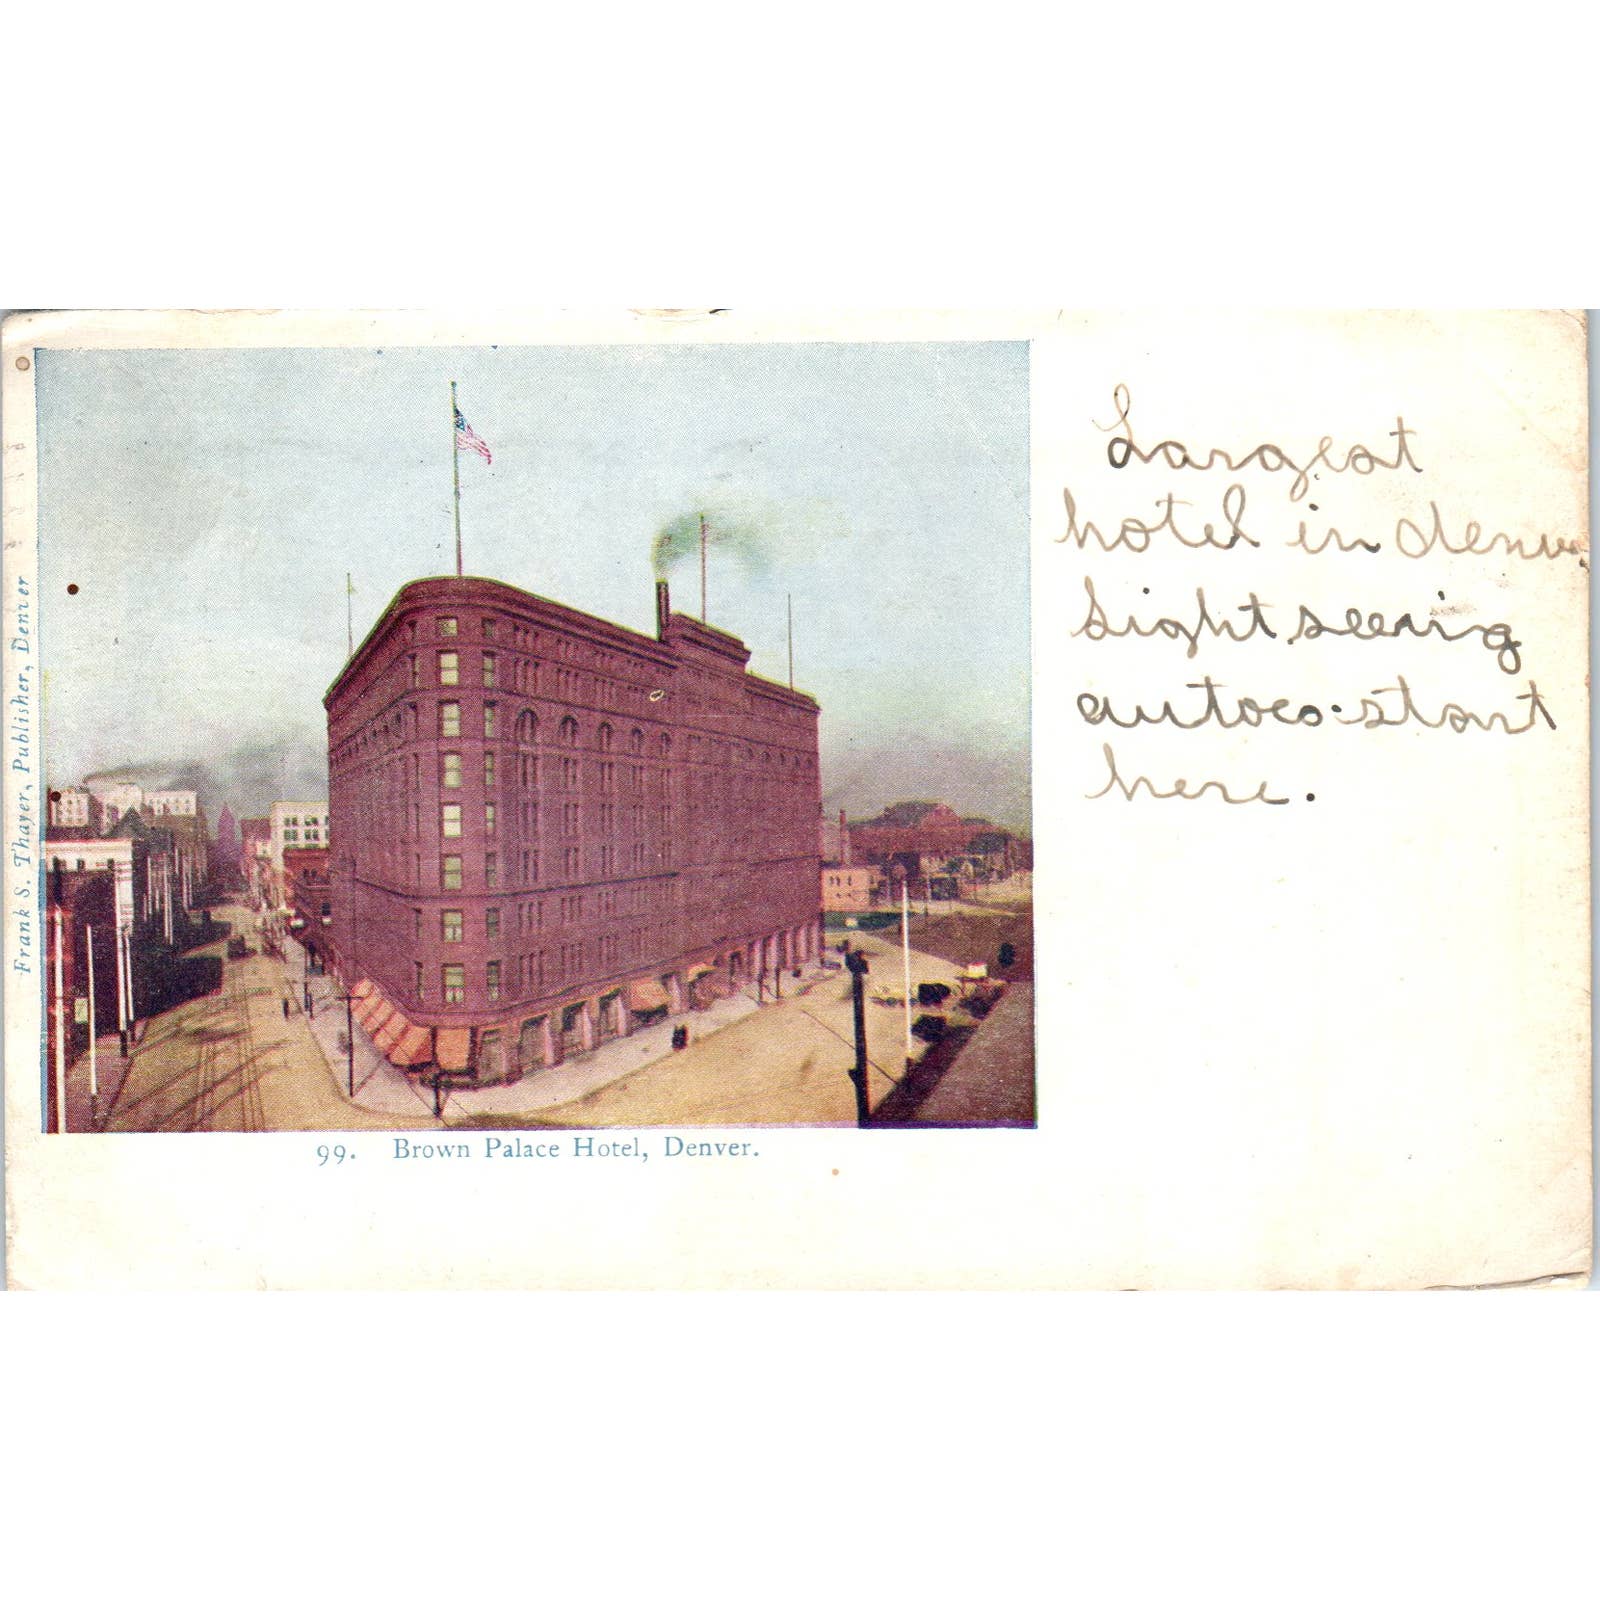 Largest
hotel in denver
Sight seeing
autoes start
here.
Frank S. Thayer, Publisher, Denver
99. Brown Palace Hotel, Denver.